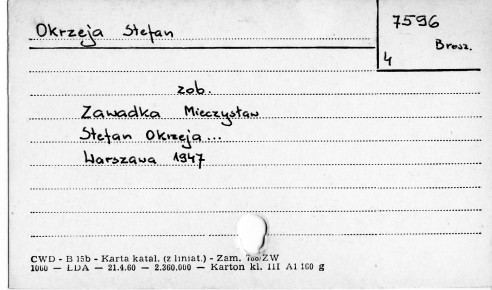 Okrzeja Stefan
7596
Brosz.
4
zob.
Zawadka Mieczysław
Stefan Okrzeja...
Warszawa 1947
CWD - B 15b - Karta katal. (z liniat.) - Zam. ZW
1060 — LDA — 21.4.60 — 2.360.000 — Karton kl. III A1 160 g